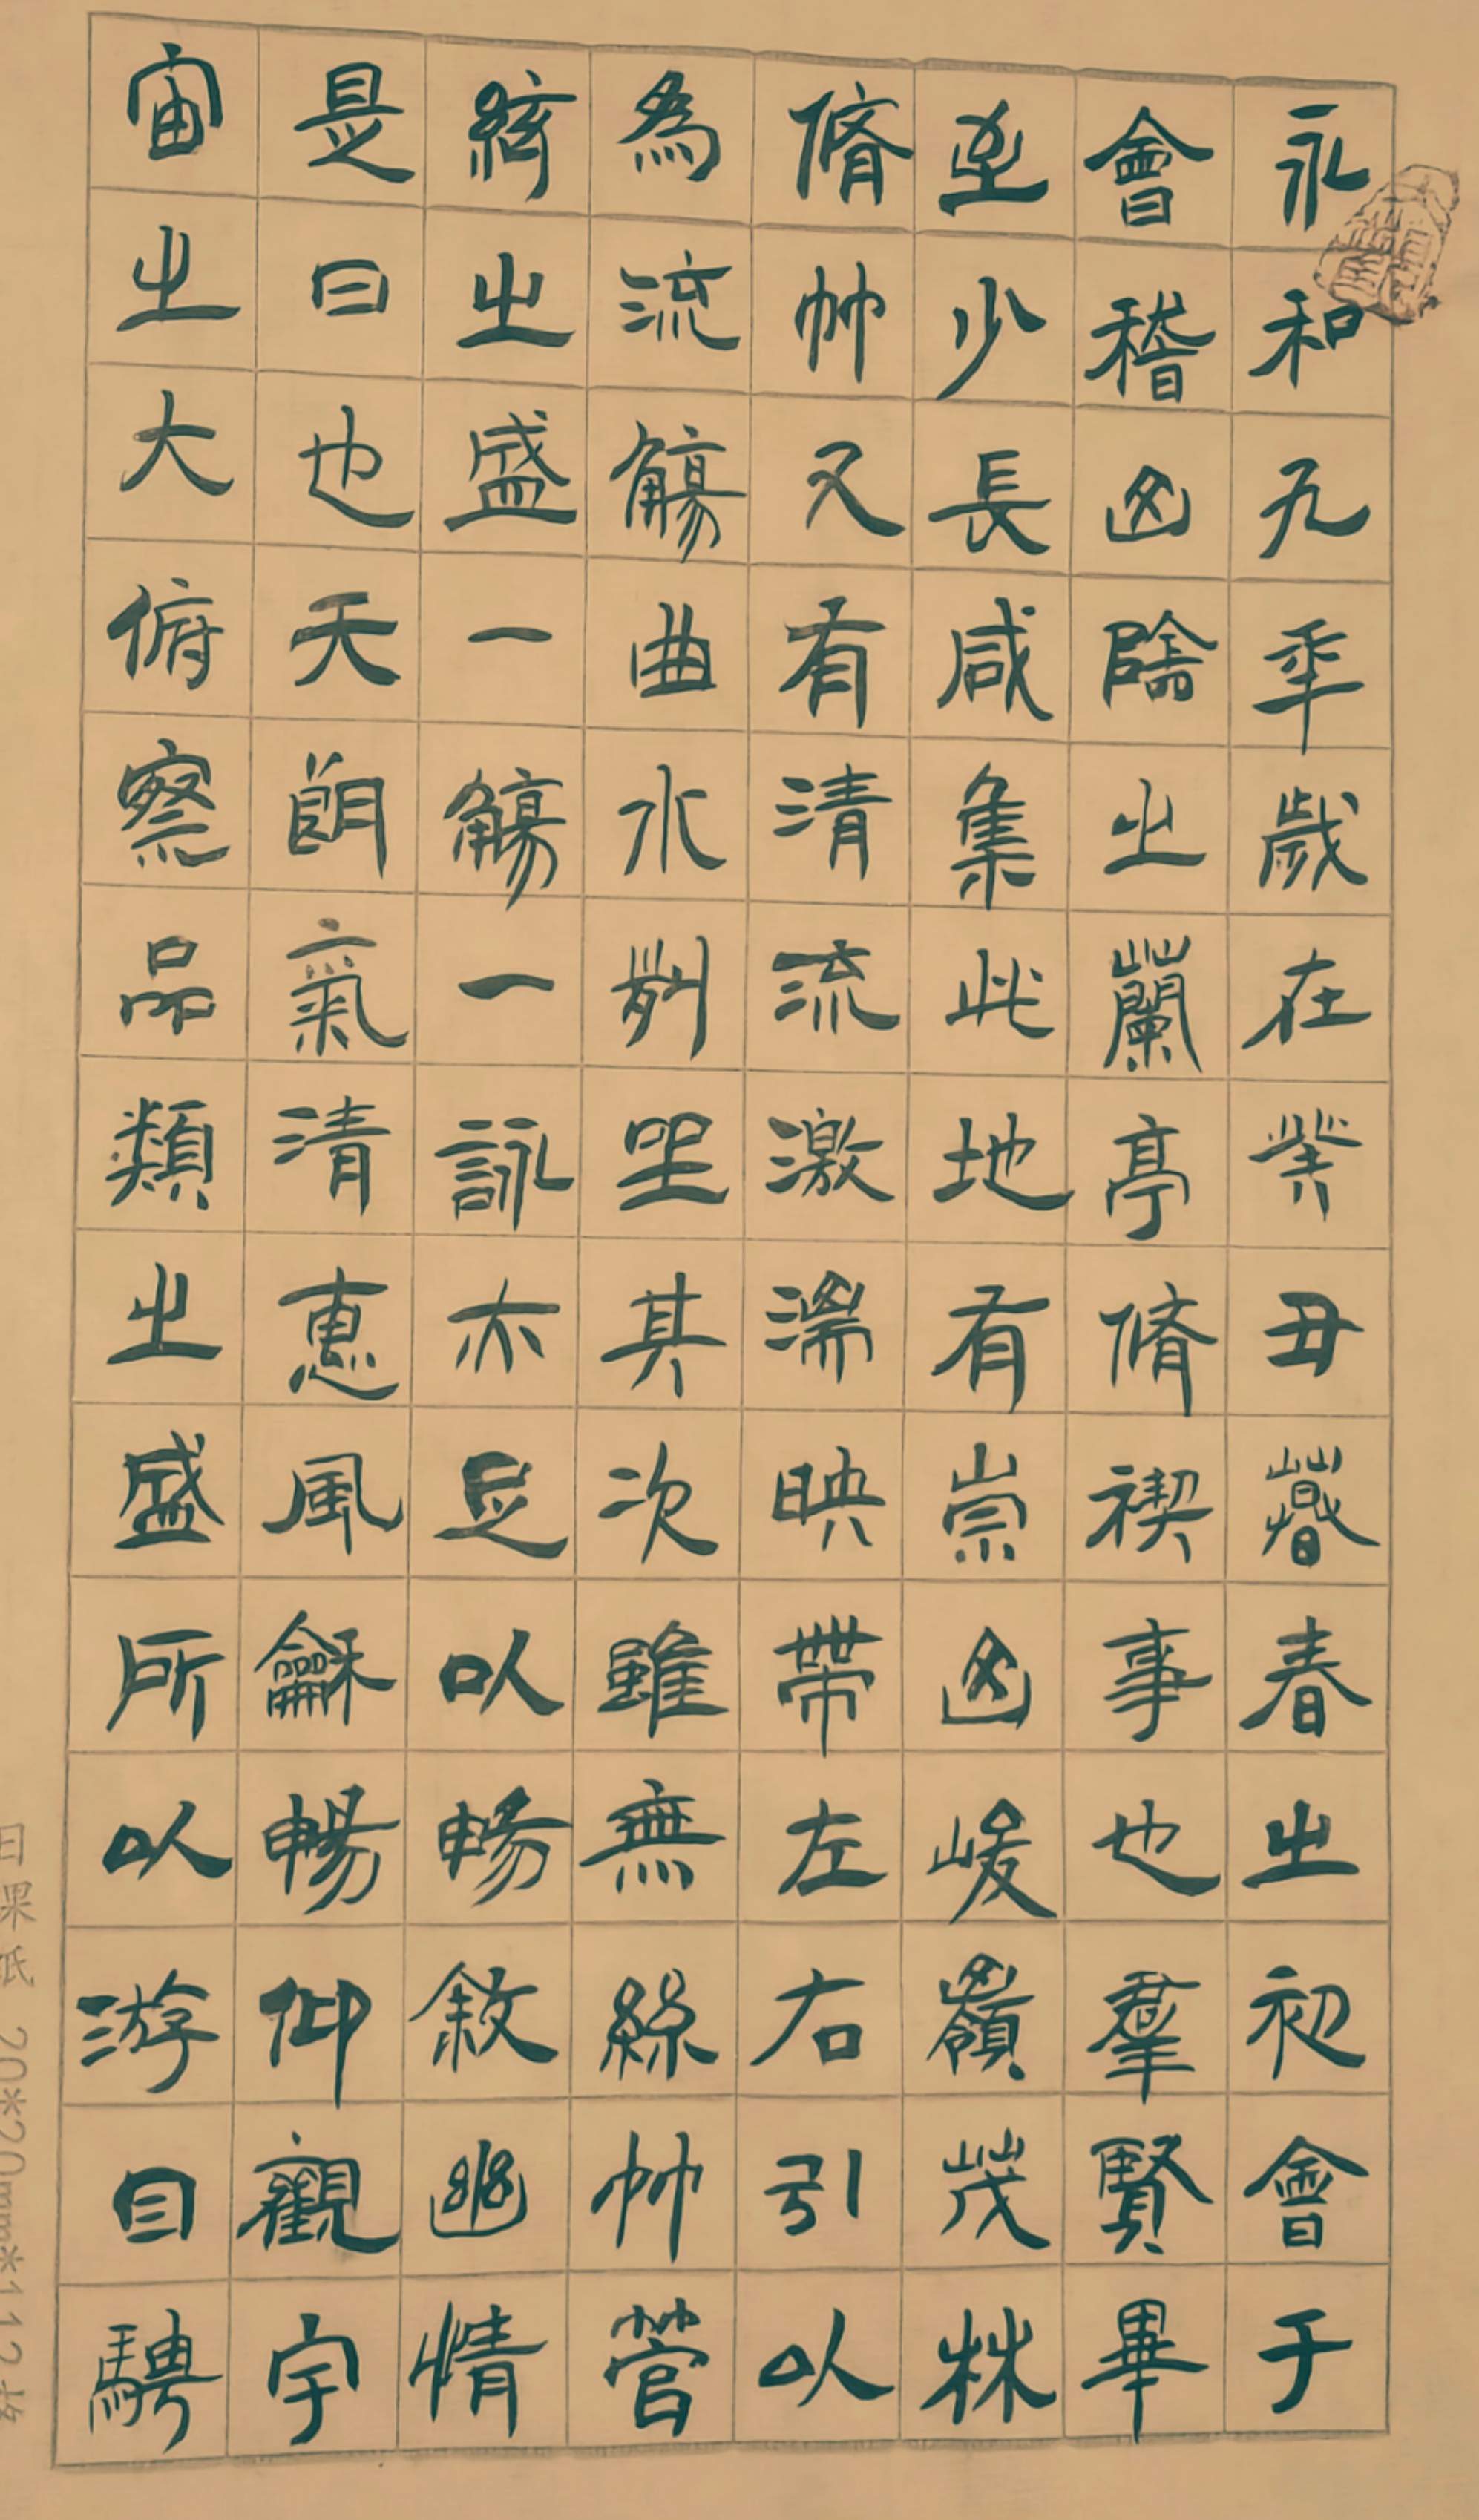 永和九年歲在癸丑暮春之初會于
會稽山陰之蘭亭脩禊事也羣賢畢
至少長咸集此地有崇山峻嶺茂林
脩竹又有清流激湍映帶左右引以
為流觴曲水列坐其次雖無絲竹管
絃之盛一觴一詠亦足以暢敘幽情
是日也天朗氣清惠風龢暢仰觀宇
宙之大俯察品類之盛所以游目騁
20*20mm*112